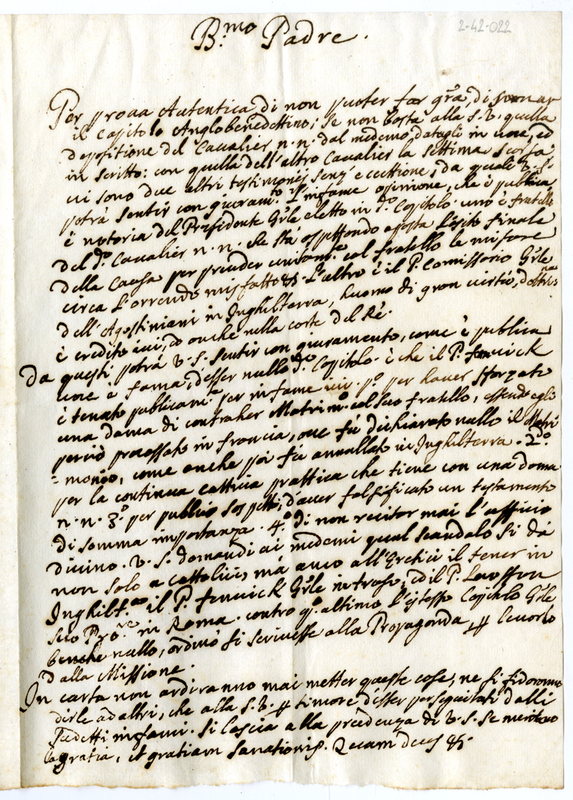 2-42-022
B.mo Padre.
Per prova Autentica, di non puoter far gra, di
il Capitolo Anglobenedettino; se non basta alla S. V. quella
depositione del Cavalier n. n. dal medemo datagli in voce, ed
in scritto: con quella dell'altro Cavalier la settima scorsa
vi sono due altri testimonij senz'eccettione, da quali
potrà sentir con giuram.to l'infame opinione, che è publica
è notoria del Presidente Gñle eletto in d.o Capitolo. uno è fratello
del d.o Cavalier n. n. che sta aspettando l'esito finale
della Causa per prender col fratello le misure
circa l'orrendo misfatto &. L'altro è il P. Comissario Gñle
dell'Agostiniani in Inghilterra, huomo di gran virtù, dottrina
è credito anche nella corte del Rè.
Da questi potrà V. S. sentir con giuramento, come è publica
voce e fama, d'esser nullo d.o Capitolo. è che il P. Fenvick
è tenuto publicam.e per infame p.o per haver sforzato
una dama di contraher Matrim.o col suo fratello, essendo egli
perciò processato in francia, ove fu dichiarato nullo il Matri
monio, come anche poi fu annullato in Inghilterra. 2.o
per la continua cattiva prattica che tiene con una donna
n. n. 3.o per publico sospetto, d'aver falsificato un testamento
di somma importanza. 4.o di non recitar mai l'officio
divino. V. S. domandi ai medemi qual scandalo si dà
non solo a cattolici, ma anco all'Eretici il tener in
Inghilt. il P. Fenvick Gñle intruso, ed il P. Lowson
suo Pro.re in Roma. contro q.o ultimo l'istesso Capitolo Gñle
benche nullo, ordinò si scrivesse alla Propaganda, levarlo
dalla Missione.
In carta non ardiranno mai metter queste cose, ne si fidoranno
dirle ad altri, che alla S. V. timore d'esser perseguitati dalli
sudetti infami. Si lascia alla prudenza di V. S. se meritano
la gratia, et gratiam sanationis. Quam deus &.